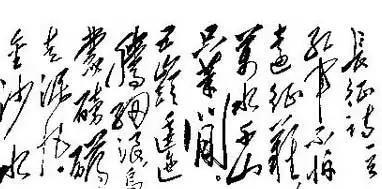 長征诗一首
红军不怕
遠征難
萬水千山
只等闲
五嶺逶迤
腾细浪烏
蒙磅礴
走泥丸
金沙水